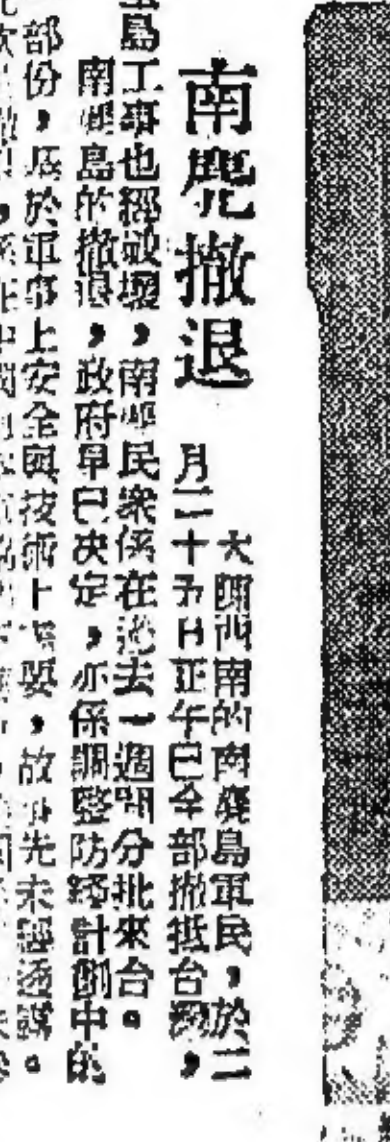 南麂撤退
大陳西南的南麂島軍民，於二
月二十五日正午已全部撤抵台灣，
島工事也經破壞，南麂民衆係在過去一週間分批來台。
南麂島的撤退，政府早已決定，亦係調整防務計劃中的
部份，屬於軍事上安全與技術上需要，故事先未經透露。